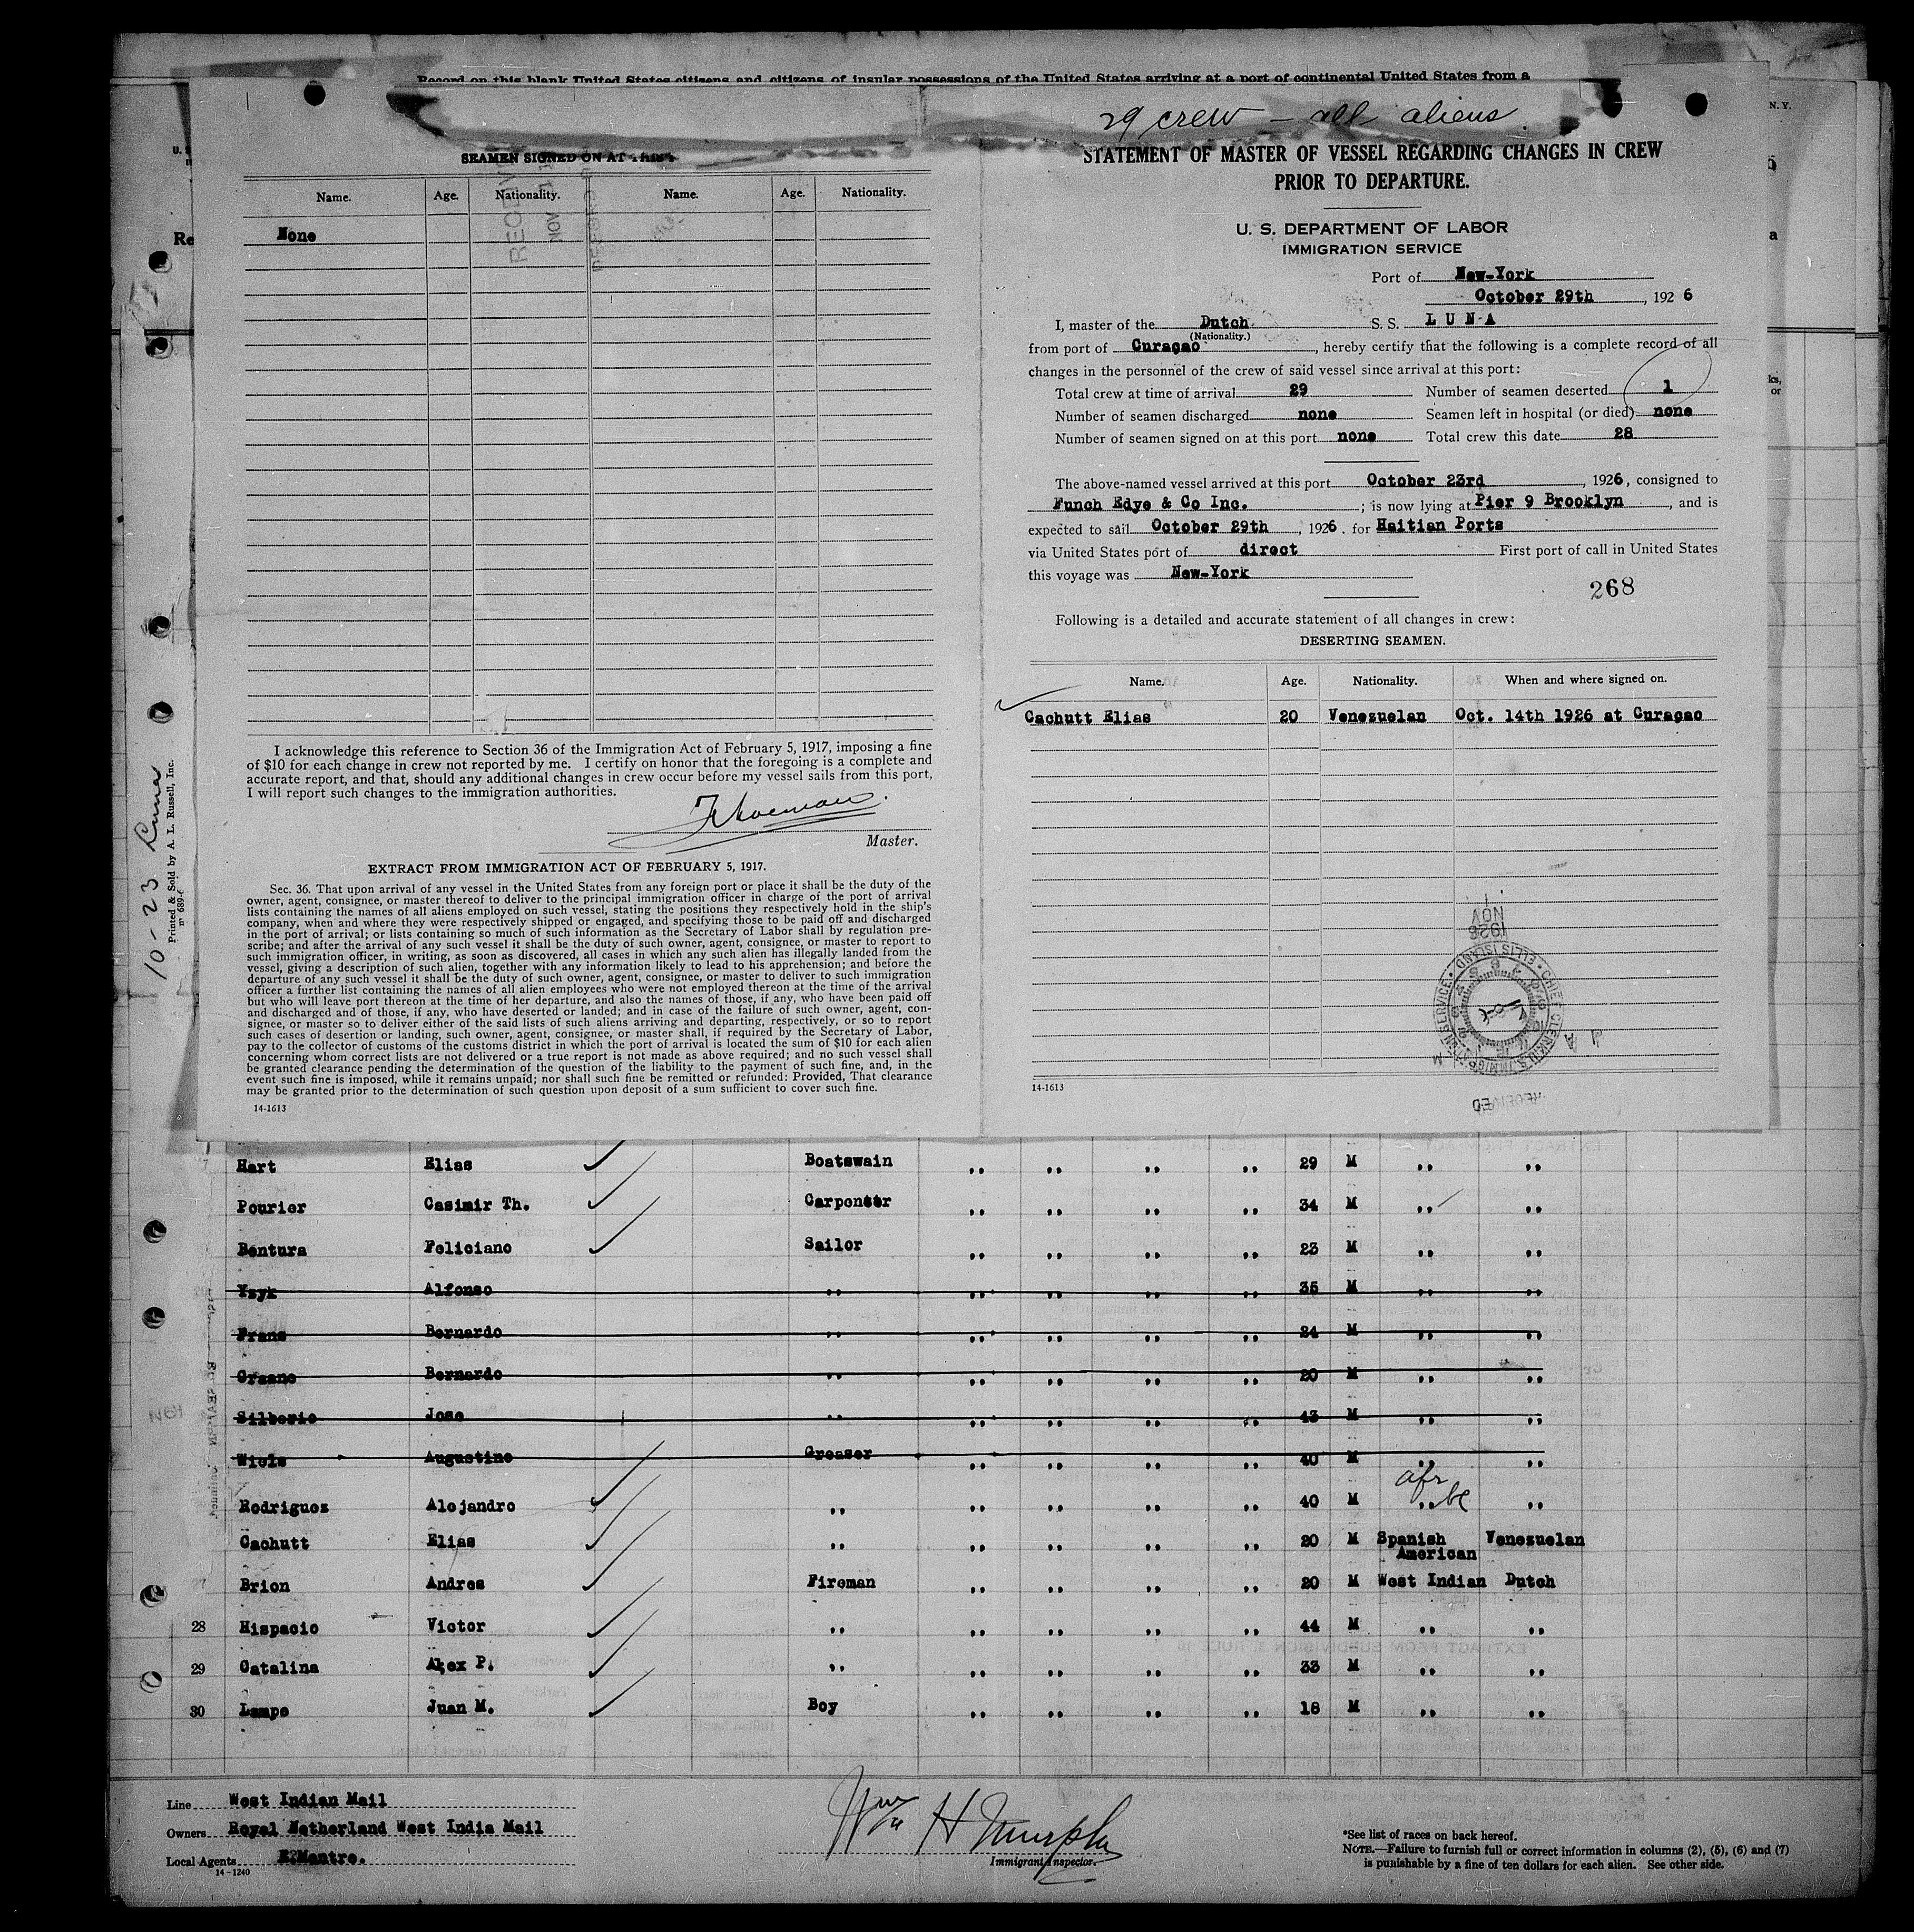 Record on this blank United States citizens and citizens of insular possessions of the United States arriving at a port of continental United States from a
N. Y.
29 crew — all aliens.
SEAMEN SIGNED ON AT
Name. Age. Nationality. Name. Age. Nationality.
None
I acknowledge this reference to Section 36 of the Immigration Act of February 5, 1917, imposing a fine
of $10 for each change in crew not reported by me. I certify on honor that the foregoing is a complete and
accurate report, and that, should any additional changes in crew occur before my vessel sails from this port,
I will report such changes to the immigration authorities.
Master.
EXTRACT FROM IMMIGRATION ACT OF FEBRUARY 5, 1917.
Sec. 36. That upon arrival of any vessel in the United States from any foreign port or place it shall be the duty of the
owner, agent, consignee, or master thereof to deliver to the principal immigration officer in charge of the port of arrival
lists containing the names of all aliens employed on such vessel, stating the positions they respectively hold in the ship's
company, when and where they were respectively shipped or engaged, and specifying those to be paid off and discharged
in the port of arrival; or lists containing so much of such information as the Secretary of Labor shall by regulation pre-
scribe; and after the arrival of any such vessel it shall be the duty of such owner, agent, consignee, or master to report to
such immigration officer, in writing, as soon as discovered, all cases in which any such alien has illegally landed from the
vessel, giving a description of such alien, together with any information likely to lead to his apprehension; and before the
departure of any such vessel it shall be the duty of such owner, agent, consignee, or master to deliver to such immigration
officer a further list containing the names of all alien employees who were not employed thereon at the time of the arrival
but who will leave port thereon at the time of her departure, and also the names of those, if any, who have been paid off
and discharged and of those, if any, who have deserted or landed; and in case of the failure of such owner, agent, con-
signee, or master so to deliver either of the said lists of such aliens arriving and departing, respectively, or so to report
such cases of desertion or landing, such owner, agent, consignee, or master shall, if required by the Secretary of Labor,
pay to the collector of customs of the customs district in which the port of arrival is located the sum of $10 for each alien
concerning whom correct lists are not delivered or a true report is not made as above required; and no such vessel shall
be granted clearance pending the determination of the question of the liability to the payment of such fine, and, in the
event such fine is imposed, while it remains unpaid; nor shall such fine be remitted or refunded: Provided, That clearance
may be granted prior to the determination of such question upon deposit of a sum sufficient to cover such fine.
14-1613
STATEMENT OF MASTER OF VESSEL REGARDING CHANGES IN CREW
PRIOR TO DEPARTURE.
U. S. DEPARTMENT OF LABOR
IMMIGRATION SERVICE
Port of New-York
October 29th, 1926
I, master of the Dutch S. S. LUNA
(Nationality.)
from port of Curaçao, hereby certify that the following is a complete record of all
changes in the personnel of the crew of said vessel since arrival at this port:
Total crew at time of arrival 29 Number of seamen deserted 1
Number of seamen discharged none Seamen left in hospital (or died) none
Number of seamen signed on at this port none Total crew this date 28
The above-named vessel arrived at this port October 23rd, 1926, consigned to
Funch Edye & Co Inc.; is now lying at Pier 9 Brooklyn, and is
expected to sail October 29th, 1926. for Haitian Ports
via United States port of direct First port of call in United States
this voyage was New-York
268
Following is a detailed and accurate statement of all changes in crew:
DESERTING SEAMEN.
Name. Age. Nationality. When and where signed on.
Cachutt Elias 20 Venezuelan Oct. 14th 1926 at Curaçao
NOV
1926
CHIEF CLERK U.S. IMMIGRATION SERVICE ELLIS ISLAND
RECEIVED
14-1613
10-23 Luna
Printed & Sold by A. L. Russell, Inc.
Hart Elias Boatswain ,, ,, ,, ,, 29 M ,, ,,
Pourier Casimir Th. Carpenter ,, ,, ,, ,, 34 M ,, ,,
Bentura Feliciano Sailor ,, ,, ,, ,, 23 M ,, ,,
Ysyk Alfonso ,, ,, ,, ,, ,, 35 M ,, ,,
Frans Bernardo ,, ,, ,, ,, ,, 24 M ,, ,,
Craane Bernardo ,, ,, ,, ,, ,, 20 M ,, ,,
Silberie Jose ,, ,, ,, ,, ,, 43 M ,, ,,
Wiels Augustino Greaser ,, ,, ,, ,, 40 M ,, ,,
afr blk
Rodriguez Alejandro ,, ,, ,, ,, ,, 40 M ,, ,,
Cachutt Elias ,, ,, ,, ,, ,, 20 M Spanish American Venezuelan
Brion Andres Fireman ,, ,, ,, ,, 20 M West Indian Dutch
28 Hispacio Victor ,, ,, ,, ,, ,, 44 M ,, ,,
29 Catalina Alex P. ,, ,, ,, ,, ,, 33 M ,, ,,
30 Lampe Juan M. Boy ,, ,, ,, ,, 18 M ,, ,,
Line West Indian Mail
Owners Royal Netherland West India Mail
Local Agents
14-1240
Wm H Murphy
Immigrant Inspector.
*See list of races on back hereof.
NOTE.—Failure to furnish full or correct information in columns (2), (5), (6) and (7)
is punishable by a fine of ten dollars for each alien. See other side.